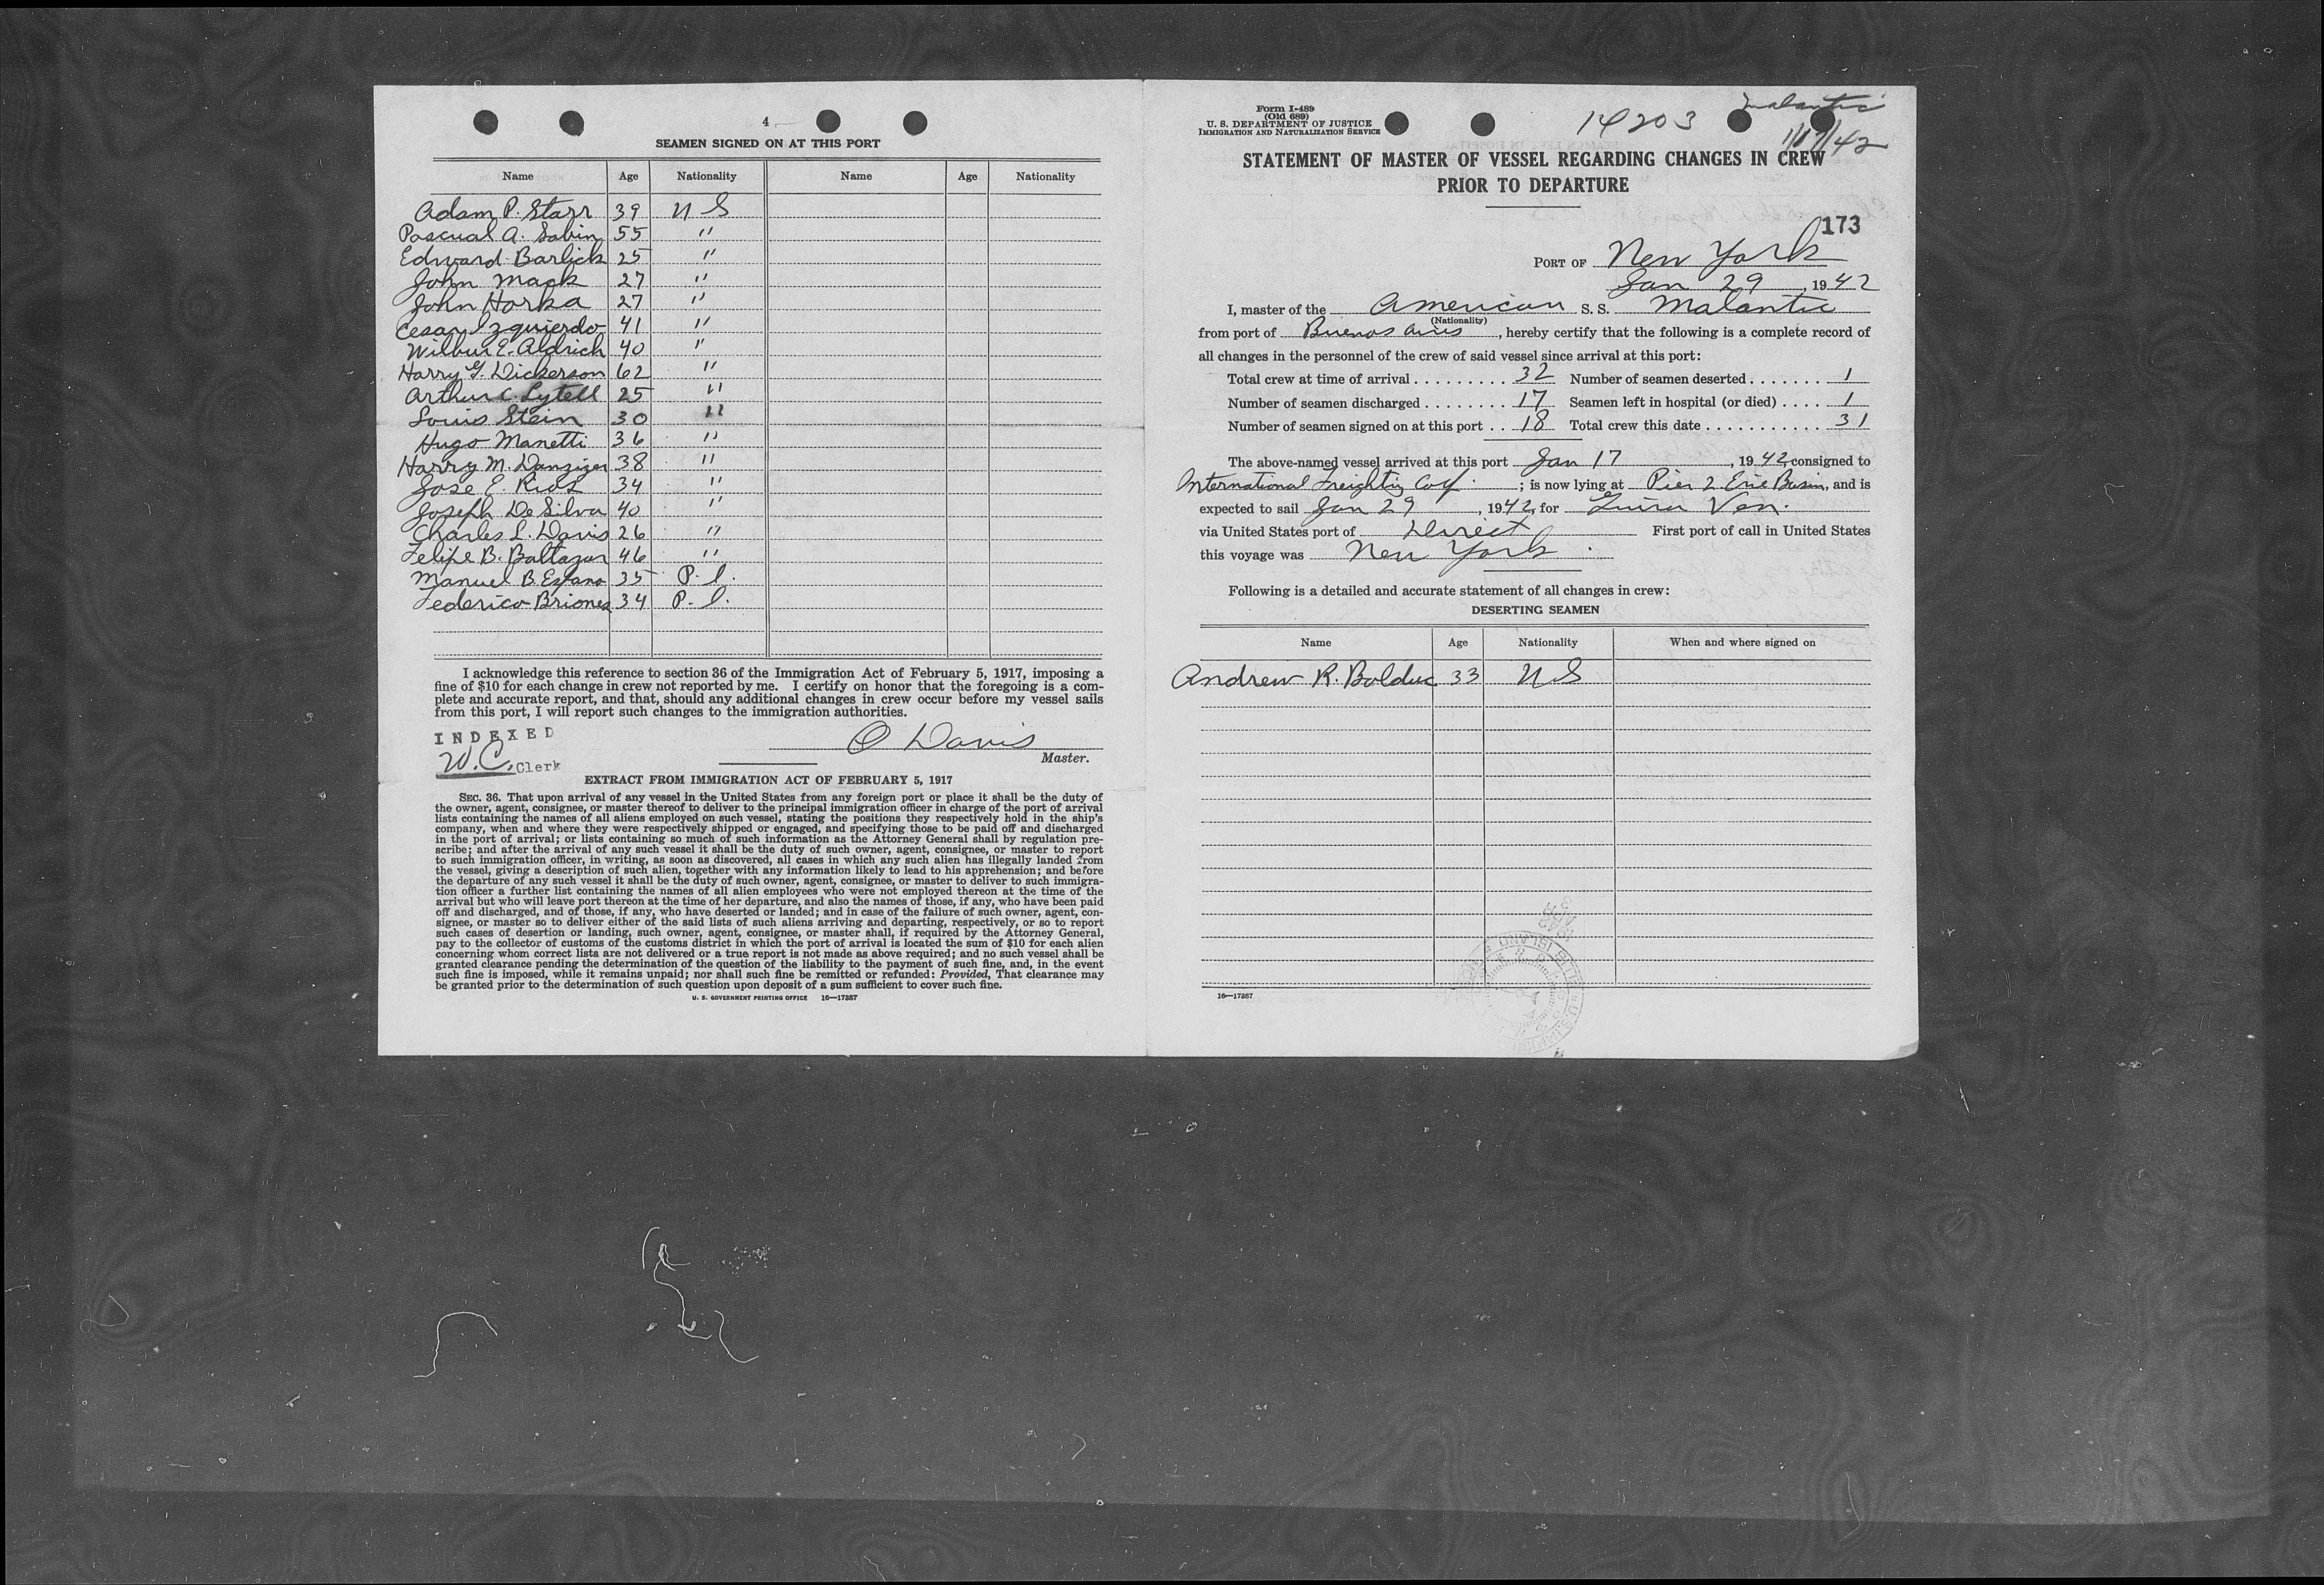 4
SEAMEN SIGNED ON AT THIS PORT
Name Age Nationality Name Age Nationality
Adam P. Starr 39 U S
Pascual A. Sabin 55 "
Edward Barlick 25 "
John Mack 27 "
John Horka 27 "
Cesar Izquierdo 41 "
Wilbur E. Aldrich 40 "
Harry G. Dickerson 62 "
Arthur C. Lytell 25 "
Louis Stein 30 "
Hugo Manetti 36 "
Harry M. Danziger 38 "
Jose E. Rios 34 "
Joseph De Silva 40 "
Charles L. Davis 26 "
Felipe B. Baltazar 46 "
Manuel B. Espano 35 P. I.
Federico Briones 34 P. I.
I acknowledge this reference to section 36 of the Immigration Act of February 5, 1917, imposing a
fine of $10 for each change in crew not reported by me. I certify on honor that the foregoing is a com-
plete and accurate report, and that, should any additional changes in crew occur before my vessel sails
from this port, I will report such changes to the immigration authorities.
INDEXED
W.C. Clerk
O Davis
Master.
EXTRACT FROM IMMIGRATION ACT OF FEBRUARY 5, 1917
SEC. 36. That upon arrival of any vessel in the United States from any foreign port or place it shall be the duty of
the owner, agent, consignee, or master thereof to deliver to the principal immigration officer in charge of the port of arrival
lists containing the names of all aliens employed on such vessel, stating the positions they respectively hold in the ship's
company, when and where they were respectively shipped or engaged, and specifying those to be paid off and discharged
in the port of arrival; or lists containing so much of such information as the Attorney General shall by regulation pre-
scribe; and after the arrival of any such vessel it shall be the duty of such owner, agent, consignee, or master to report
to such immigration officer, in writing, as soon as discovered, all cases in which any such alien has illegally landed from
the vessel, giving a description of such alien, together with any information likely to lead to his apprehension; and before
the departure of any such vessel it shall be the duty of such owner, agent, consignee, or master to deliver to such immigra-
tion officer a further list containing the names of all alien employees who were not employed thereon at the time of the
arrival but who will leave port thereon at the time of her departure, and also the names of those, if any, who have been paid
off and discharged, and of those, if any, who have deserted or landed; and in case of the failure of such owner, agent, con-
signee, or master so to deliver either of the said lists of such aliens arriving and departing, respectively, or so to report
such cases of desertion or landing, such owner, agent, consignee, or master shall, if required by the Attorney General,
pay to the collector of customs of the customs district in which the port of arrival is located the sum of $10 for each alien
concerning whom correct lists are not delivered or a true report is not made as above required; and no such vessel shall be
granted clearance pending the determination of the question of the liability to the payment of such fine, and, in the event
such fine is imposed, while it remains unpaid; nor shall such fine be remitted or refunded: Provided, That clearance may
be granted prior to the determination of such question upon deposit of a sum sufficient to cover such fine.
U. S. GOVERNMENT PRINTING OFFICE 16—17387
Form I-489
(Old 689)
U. S. DEPARTMENT OF JUSTICE
IMMIGRATION AND NATURALIZATION SERVICE
14203
Malantic
1/17/42
STATEMENT OF MASTER OF VESSEL REGARDING CHANGES IN CREW
PRIOR TO DEPARTURE
173
PORT OF New York
Jan 29, 1942
I, master of the American S. S. Malantic
(Nationality)
from port of Buenos Aires, hereby certify that the following is a complete record of
all changes in the personnel of the crew of said vessel since arrival at this port:
Total crew at time of arrival 32 Number of seamen deserted 1
Number of seamen discharged 17 Seamen left in hospital (or died) 1
Number of seamen signed on at this port 18 Total crew this date 31
The above-named vessel arrived at this port Jan 17, 1942, consigned to
International Freighting Corp.; is now lying at Pier 2 Erie Basin, and is
expected to sail Jan 29, 1942, for Guiria Ven.
via United States port of Direct First port of call in United States
this voyage was New York.
Following is a detailed and accurate statement of all changes in crew:
DESERTING SEAMEN
Name Age Nationality When and where signed on
Andrew R. Bolduc 33 U S
16—17387